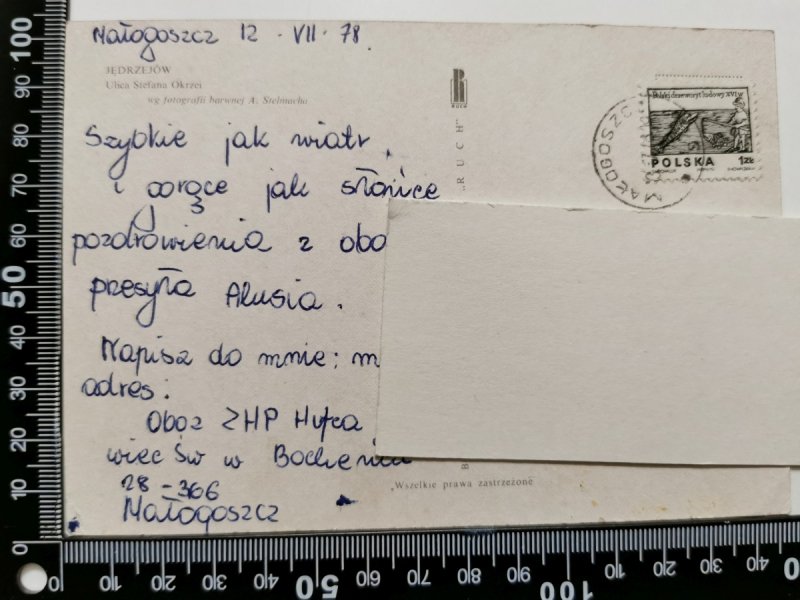 Małogoszcz 12 · VII · 78.
JĘDRZEJÓW
Ulica Stefana Okrzei
wg fotografii barwnej A. Stelmacha
Szybkie jak wiatr,
i gorące jak słońce
pozdrowienia z obo
przesyła Alusia.
Napisz do mnie: m
adres:
Obóz ZHP Hufca
wiec Św w Bochenia
28-366
Małogoszcz
RUCH
„RUCH"
B
Wszelkie prawa zastrzeżone
Polski drzeworyt ludowy XVI w
POLSKA 1ZŁ
MAŁOGOSZCZ
0 10 20 30 40 50 60 70 80 90 100
0 10 20 30 40 50 60 70 80 90 100 10 20 30 40